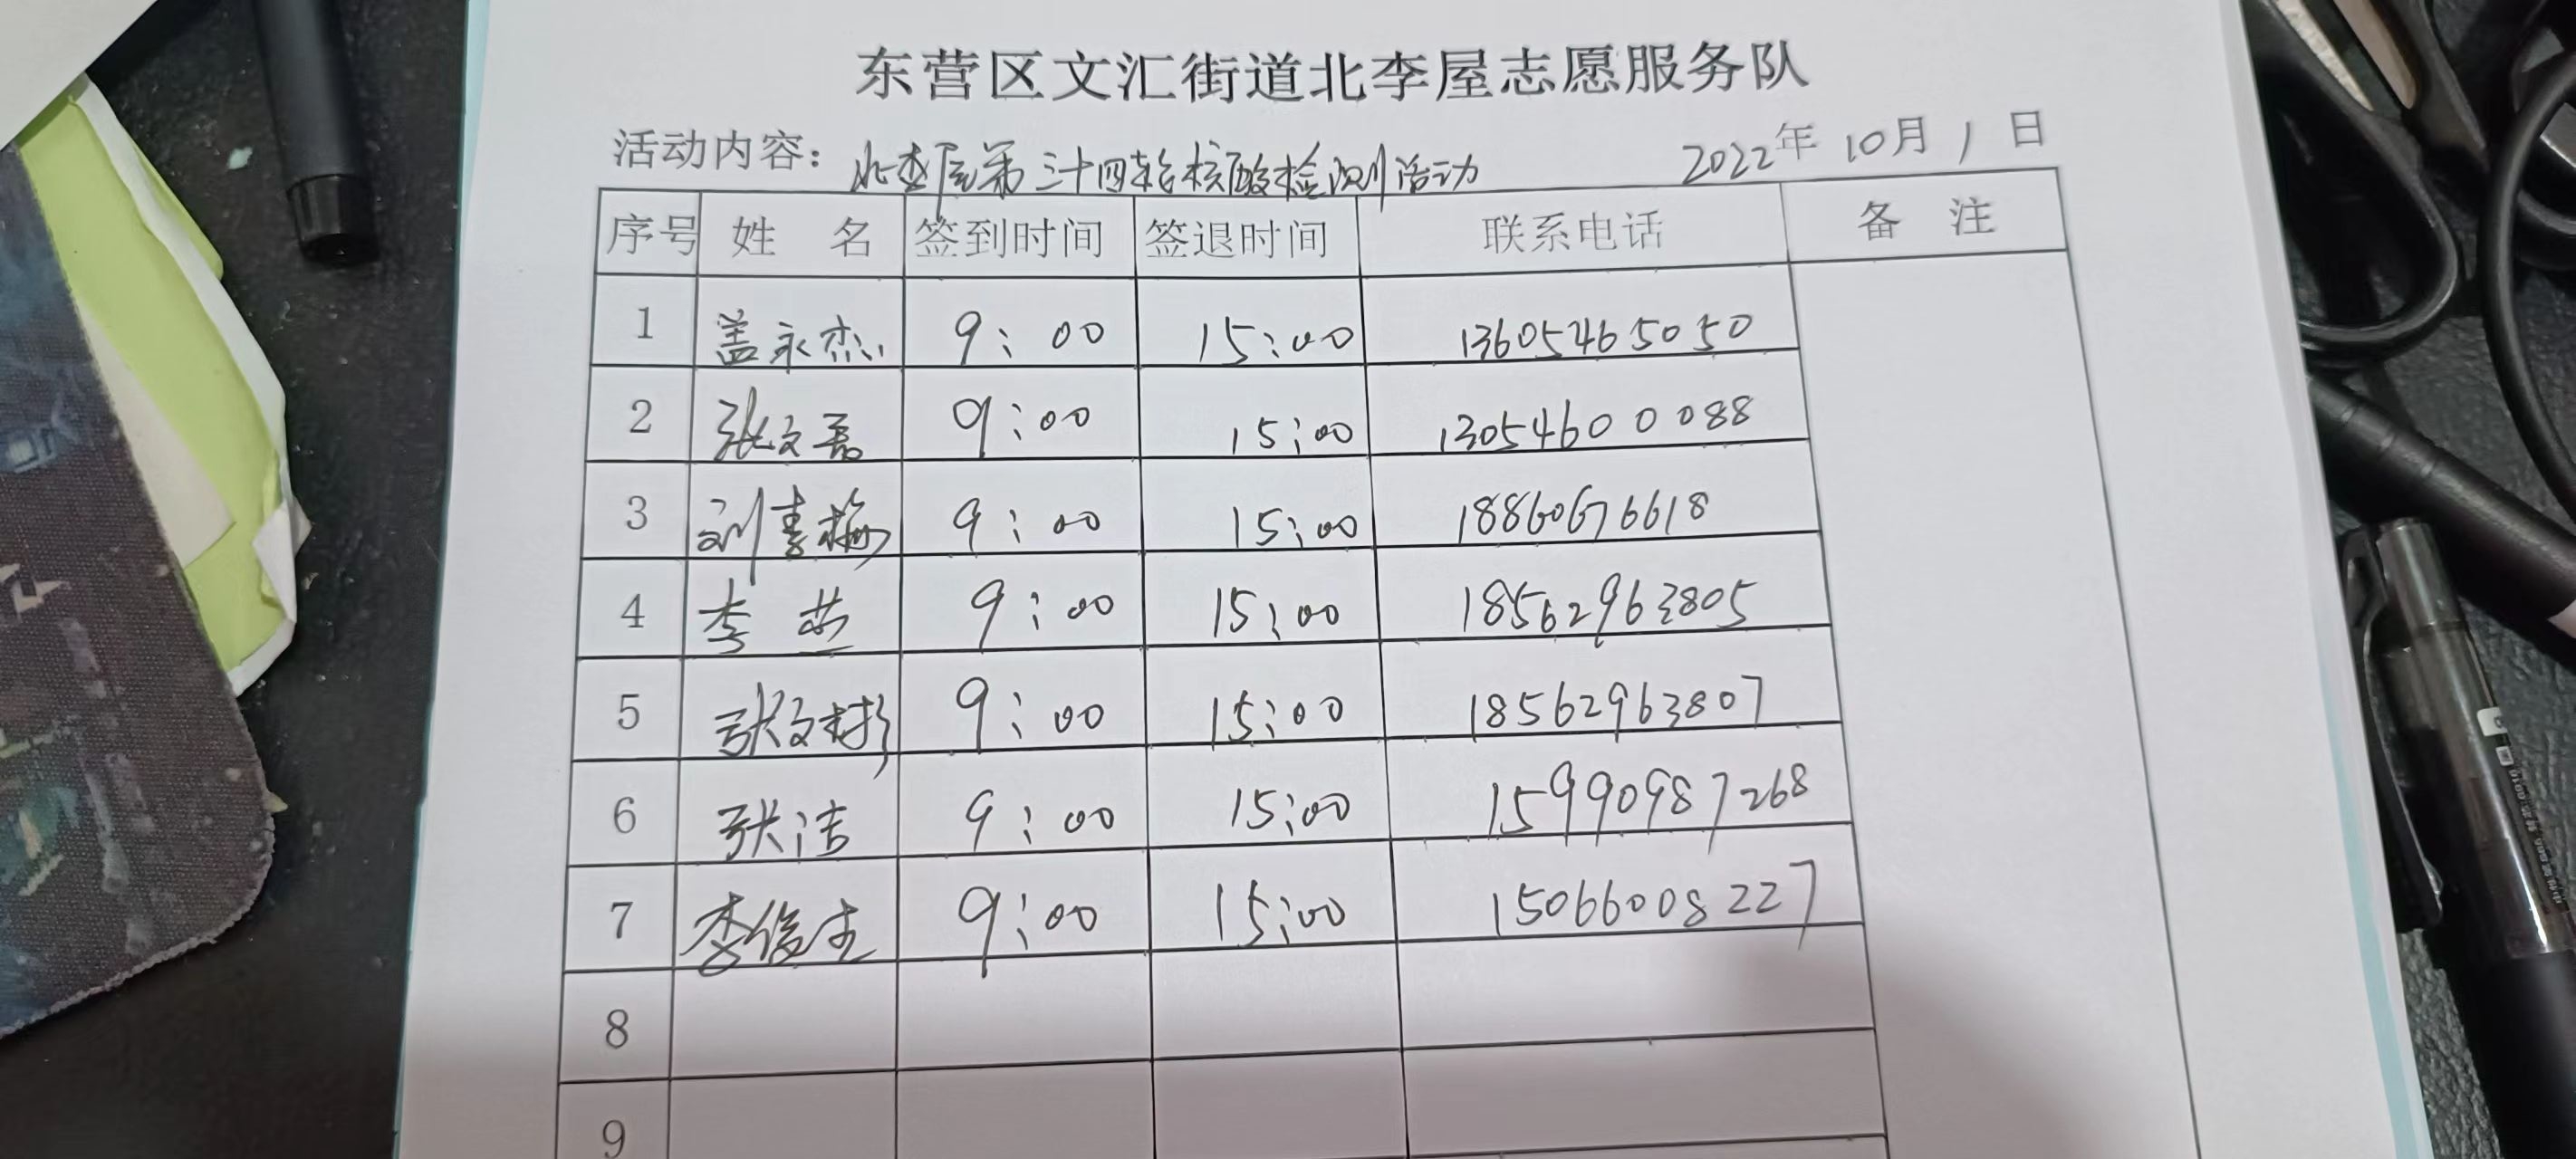 东营区文汇街道北李屋志愿服务队
活动内容：北李屋第三十四轮核酸检测活动 2022年10月1日
序号 姓 名 签到时间 签退时间 联系电话 备 注
1 盖永杰 9：00 15：00 13605465050
2 张文磊 9：00 15：00 13054600088
3 刘素梅 9：00 15：00 18860676618
4 李燕 9：00 15：00 18562963805
5 张文彬 9：00 15：00 18562963807
6 张洁 9：00 15：00 15990987268
7 李俊 9：00 15：00 15066008227
8
9